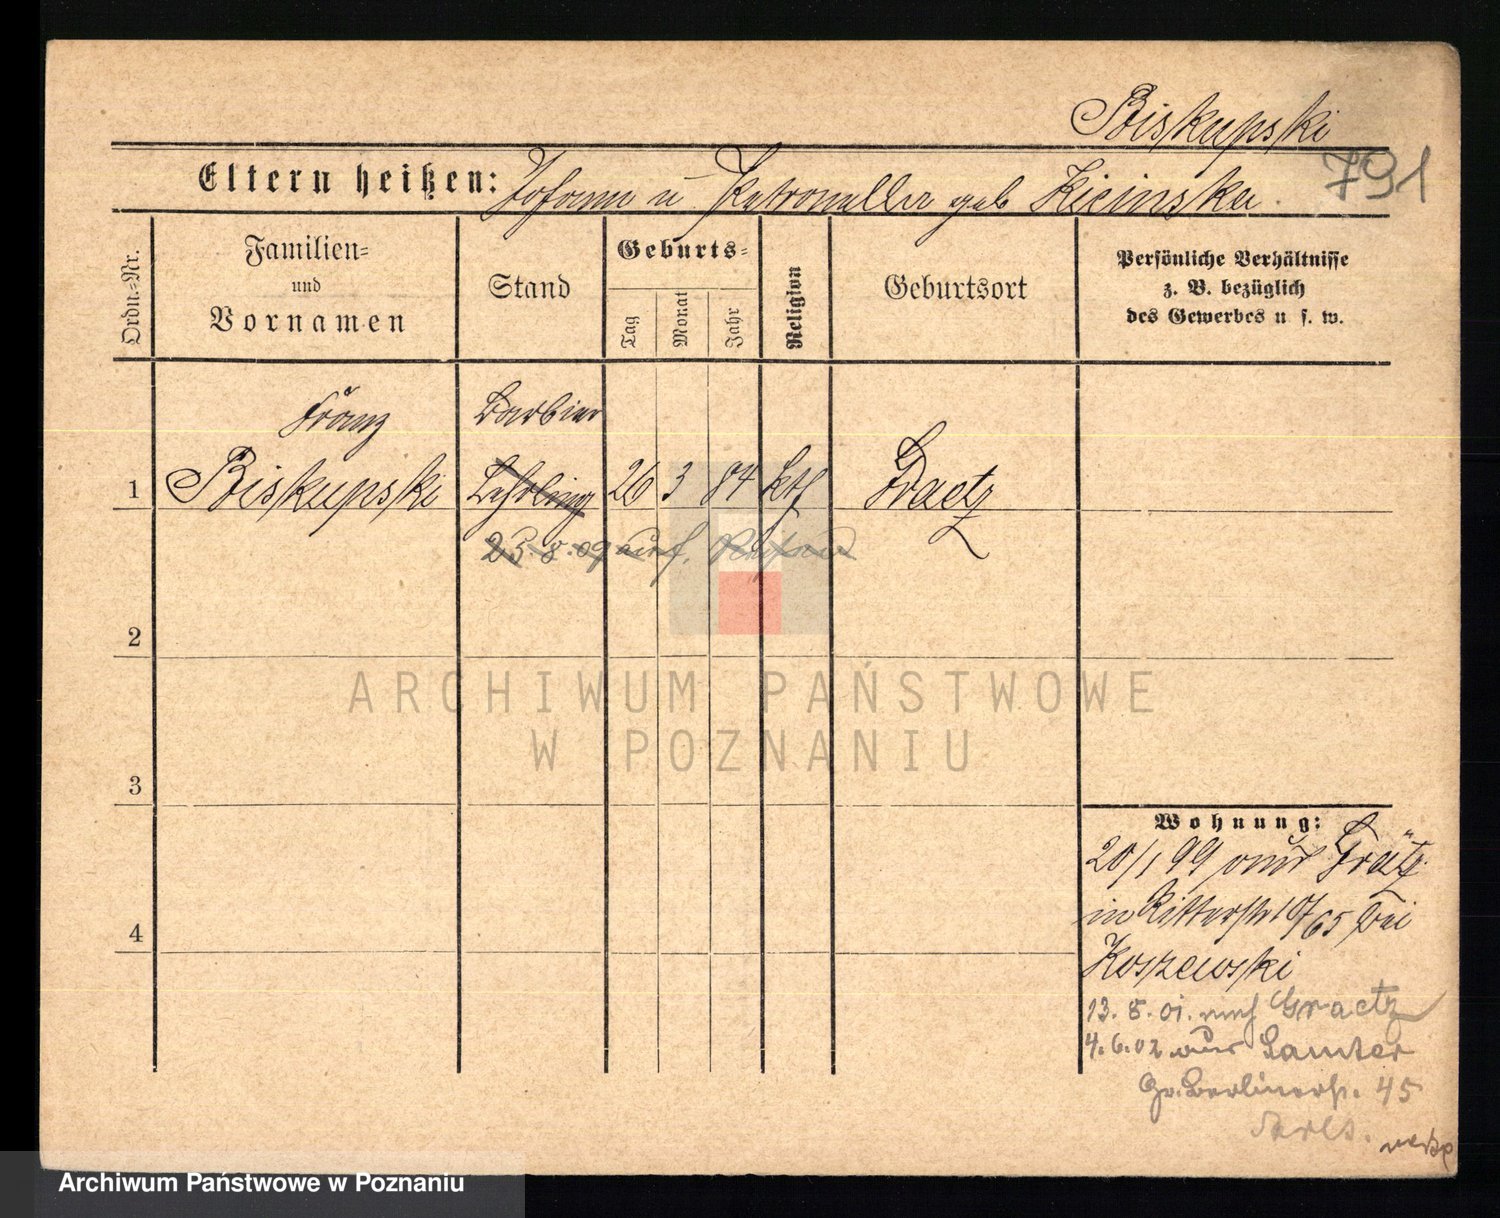 Biskupski
791
Eltern heißen: Johann u Petronella geb Kicinska.
Ordn.-Nr.
Familien-
und
Vornamen
Stand
Geburts-
Tag
Monat
Jahr
Religion
Geburtsort
Persönliche Verhältnisse
z. B. bezüglich
des Gewerbes u. s. w.
Franz Barbier
1 Biskupski Lehrling 26 3 84 kth Graetz
25.8.09 auf
2
ARCHIWUM PAŃSTWOWE
W POZNANIU
3
Wohnung:
20/1 99 aus Grätz
in Ritterstr 10/65 bei
4
Koszewski
13.8.01. nach Graetz
4.6.02 aus Samter
Gr. Berlinerstr. 45
Archiwum Państwowe w Poznaniu